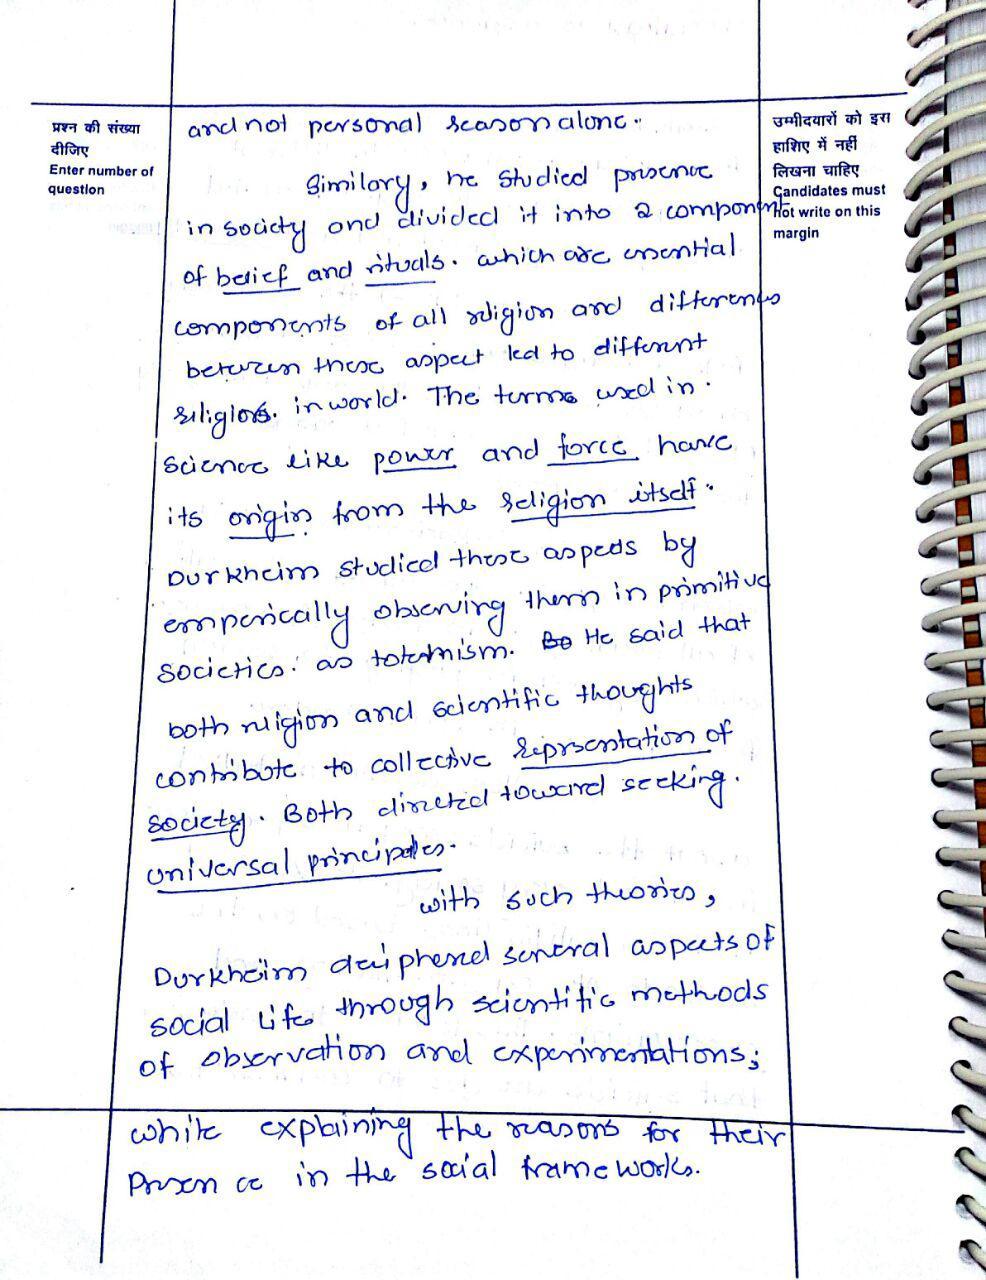 प्रश्न की संख्या
दीजिए
Enter number of
question
उम्मीदवारों को इस
हाशिए में नहीं
लिखना चाहिए
Candidates must
not write on this
margin
and not personal reason alone.
Similary, he studied prisence
in society and divided it into 2 component
of belief and rituals. which are essential
components of all religion and differences
between these aspect led to different
religions. in world. The terms used in.
science like power and force have
its origin from the religion itself.
Durkheim studied these aspects by
emperically observing them in primitive
societies. as totemism. He said that
both religion and scientific thoughts
contribute to collective reprsentation of
society. Both directed toward seeking.
universal principales.
with such theories,
Durkheim deiphered several aspects of
social life through scientific methods
of observation and experimentations;
while explaining the reasons for their
Presence in the social frameworks.